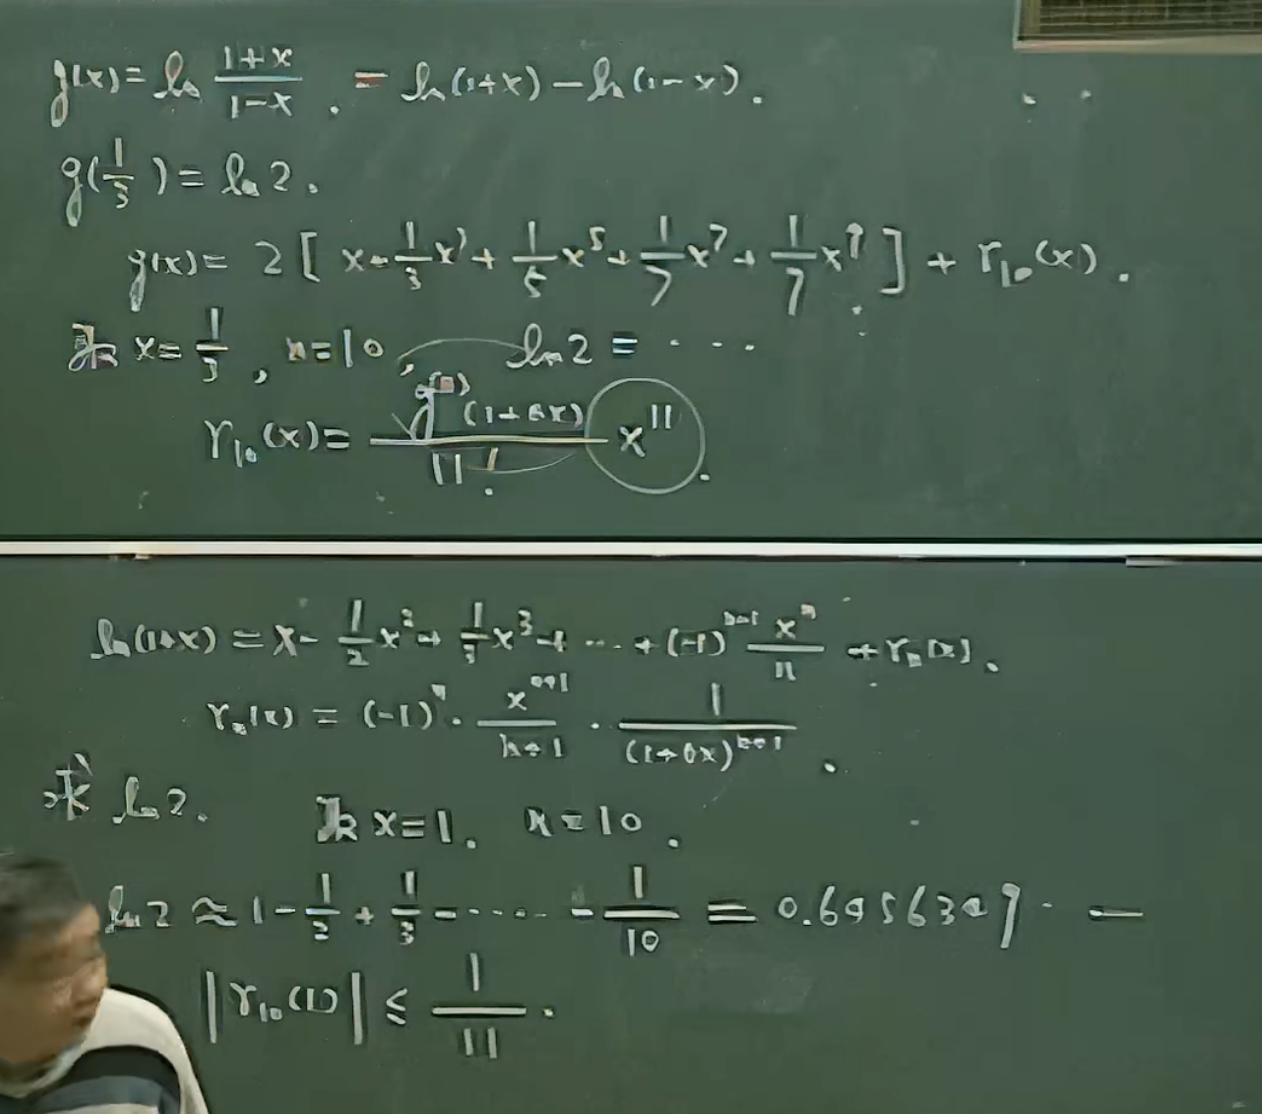 g(x) = ln (1+x)/(1-x) . = ln(1+x) - ln(1-x).
g(1/3) = ln 2.
g(x) = 2[ x + 1/3 x³ + 1/5 x⁵ + 1/7 x⁷ + 1/7 x⁹ ] + r₁₀(x).
取 x = 1/3 , n=10, ln 2 = ...
r₁₀(x) = g⁽¹¹⁾(1+θx)/11! x¹¹.
ln(1+x) = x - 1/2 x² + 1/3 x³ + ... + (-1)ⁿ⁻¹ xⁿ/n + rₙ(x).
rₙ(x) = (-1)ⁿ · xⁿ⁺¹/(n+1) · 1/(1+θx)ⁿ⁺¹ .
求 ln 2. 取 x=1. n=10.
ln 2 ≈ 1 - 1/2 + 1/3 - ... - 1/10 =
|r₁₀(1)| ≤ 1/11.